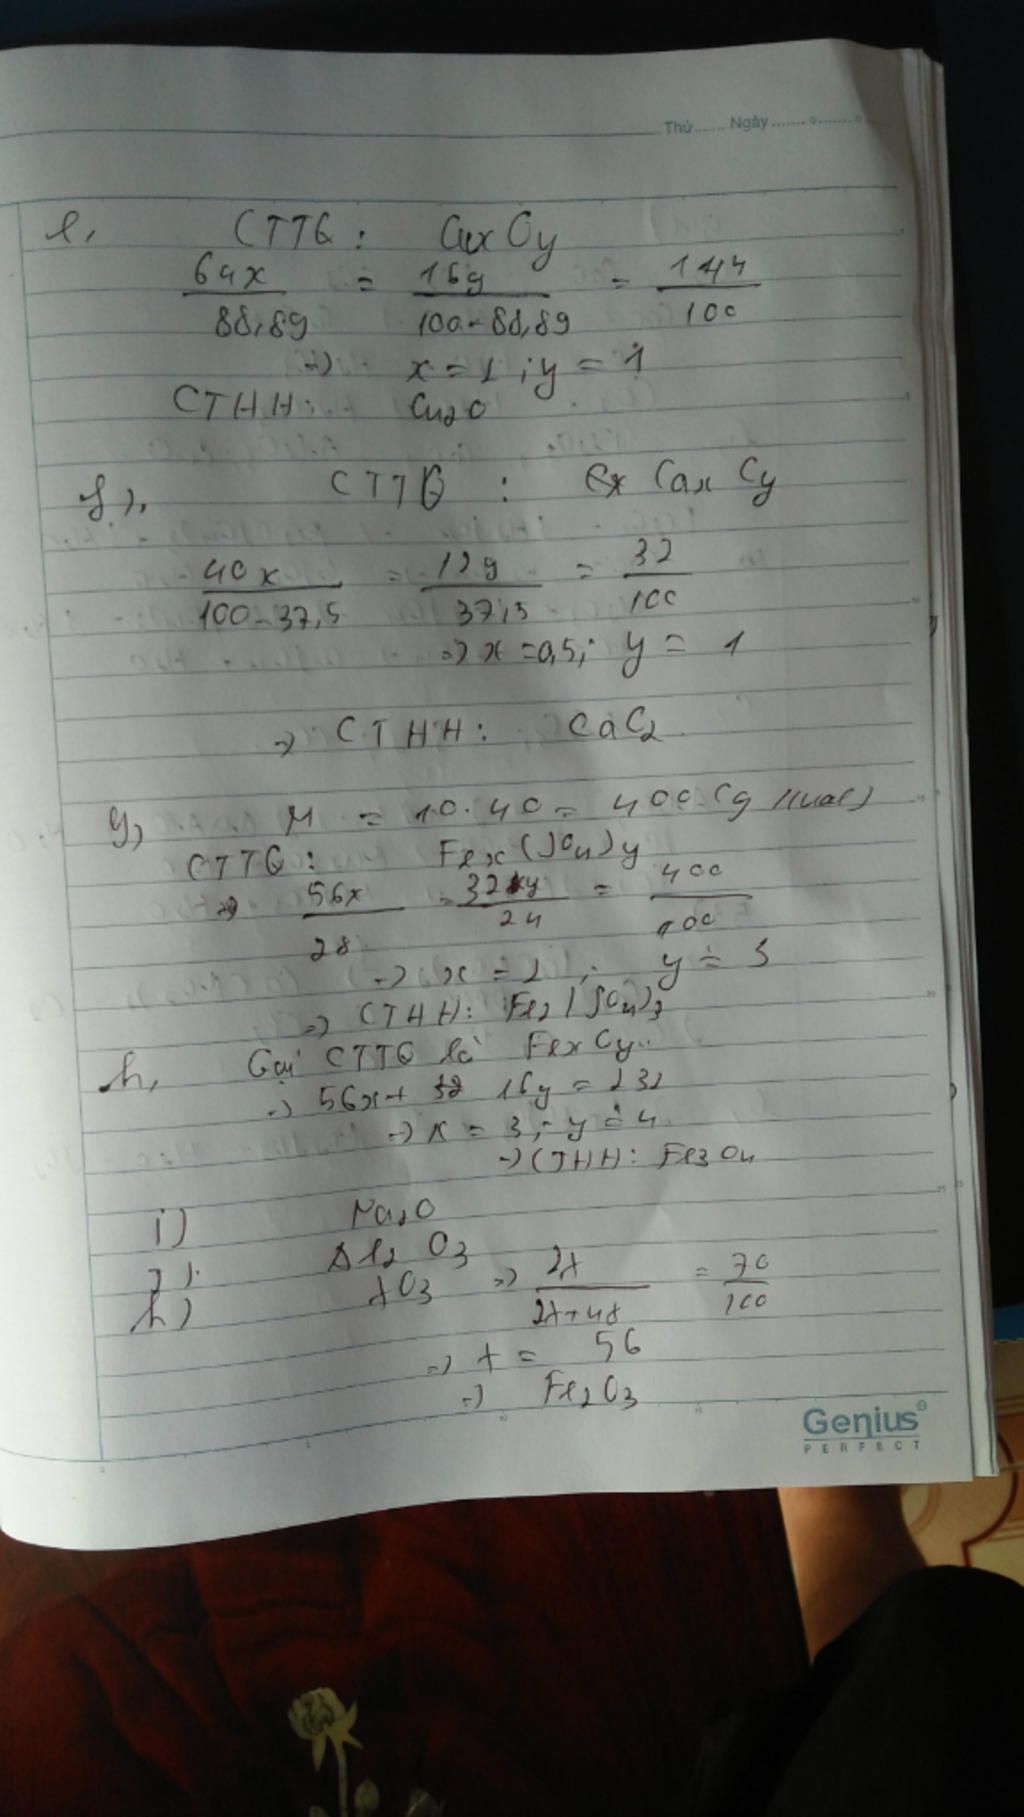 Thứ...... Ngày....... o....... o
e, CTTQ: CuxOy
64x / 88,89 = 16y / 100-88,89 = 144 / 100
=> x = 1 ; y = 1
CTHH: Cu2O
f), CTTQ : Cax Cy
40x / 100-37,5 = 12y / 37,5 = 32 / 100
=> x = 0,5; y = 1
=> CTHH: CaC2
g) M = 10.40 = 400 (g/mol)
CTTQ: Fex(SO4)y
=> 56x / 28 = 32y / 24 = 400 / 100
=> x = 2 ; y = 3
=> CTHH: Fe2(SO4)3
h, Gọi CTTQ là FexOy
=> 56x + 16y = 232
=> x = 3; y = 4
=> CTHH: Fe3O4
i) Na2O
j) Al2O3
k) XO3 => 2X / 2X+48 = 70 / 100
=> X = 56
=> Fe2O3
Genius
PERFECT